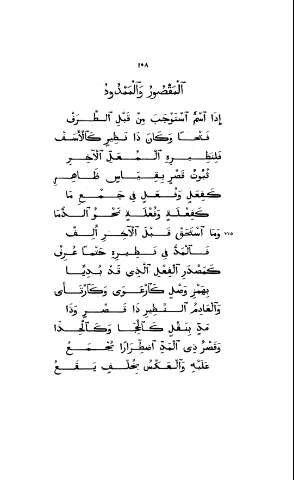 ١٥٨
اَلْمَقْصُورُ وَٱلْمَمْدُودُ
إِذَا ٱسْمٌ ٱسْتَوْجَبَ مِنْ قَبْلِ ٱلطَّرَفْ
فَتْحًا وَكَانَ ذَا نَظِيرٍ كَٱلْأَسَفْ
فَلِنَظِيرِهِ ٱلْمُعَلِّ ٱلْآخِرِ
ثُبُوتُ قَصْرٍ بِقِيَاسٍ ظَاهِرِ
كَفِعَلٍ وَفُعَلٍ فِي جَمْعِ مَا
كَفِعْلَةٍ وَفُعْلَةٍ نَحْوُ ٱلدُّمَا
٧٧٥ وَمَا ٱسْتَحَقَّ قَبْلَ ٱلْآخِرِ أَلِفْ
فَٱلْمَدُّ فِي نَظِيرِهِ حَتْمًا عُرِفْ
كَمَصْدَرِ ٱلْفِعْلِ ٱلَّذِي قَدْ بُدِيَا
بِهَمْزِ وَصْلٍ كَٱرْعَوَى وَكَٱرْتَأَى
وَٱلْعَادِمُ ٱلنَّظِيرِ ذَا قَصْرٍ وَذَا
مَدٍّ بِنَقْلٍ كَٱلْحِجَا وَكَٱلْحِذَا
وَقَصْرُ ذِي ٱلْمَدِّ ٱضْطِرَارًا مُجْمَعُ
عَلَيْهِ وَٱلْعَكْسُ بِخُلْفٍ يَقَعُ